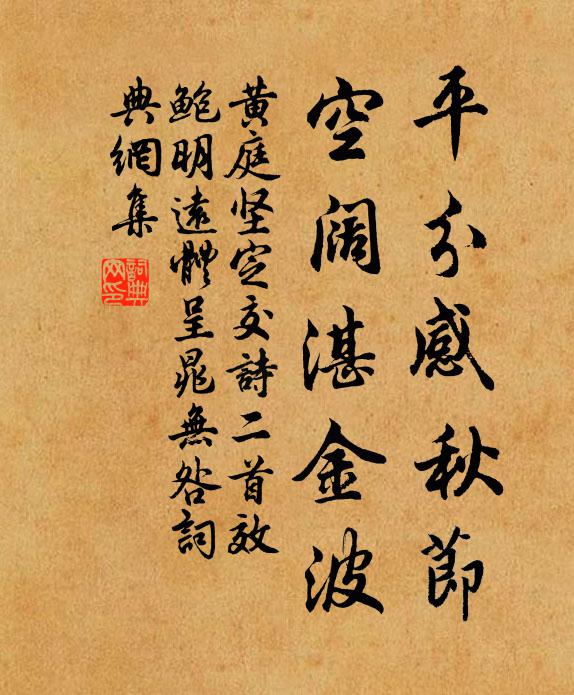 平分感秋節
空阔湛金波
黄庭坚定交詩二首效
鮑明遠體呈晁無咎詞
典網集
詞典網印